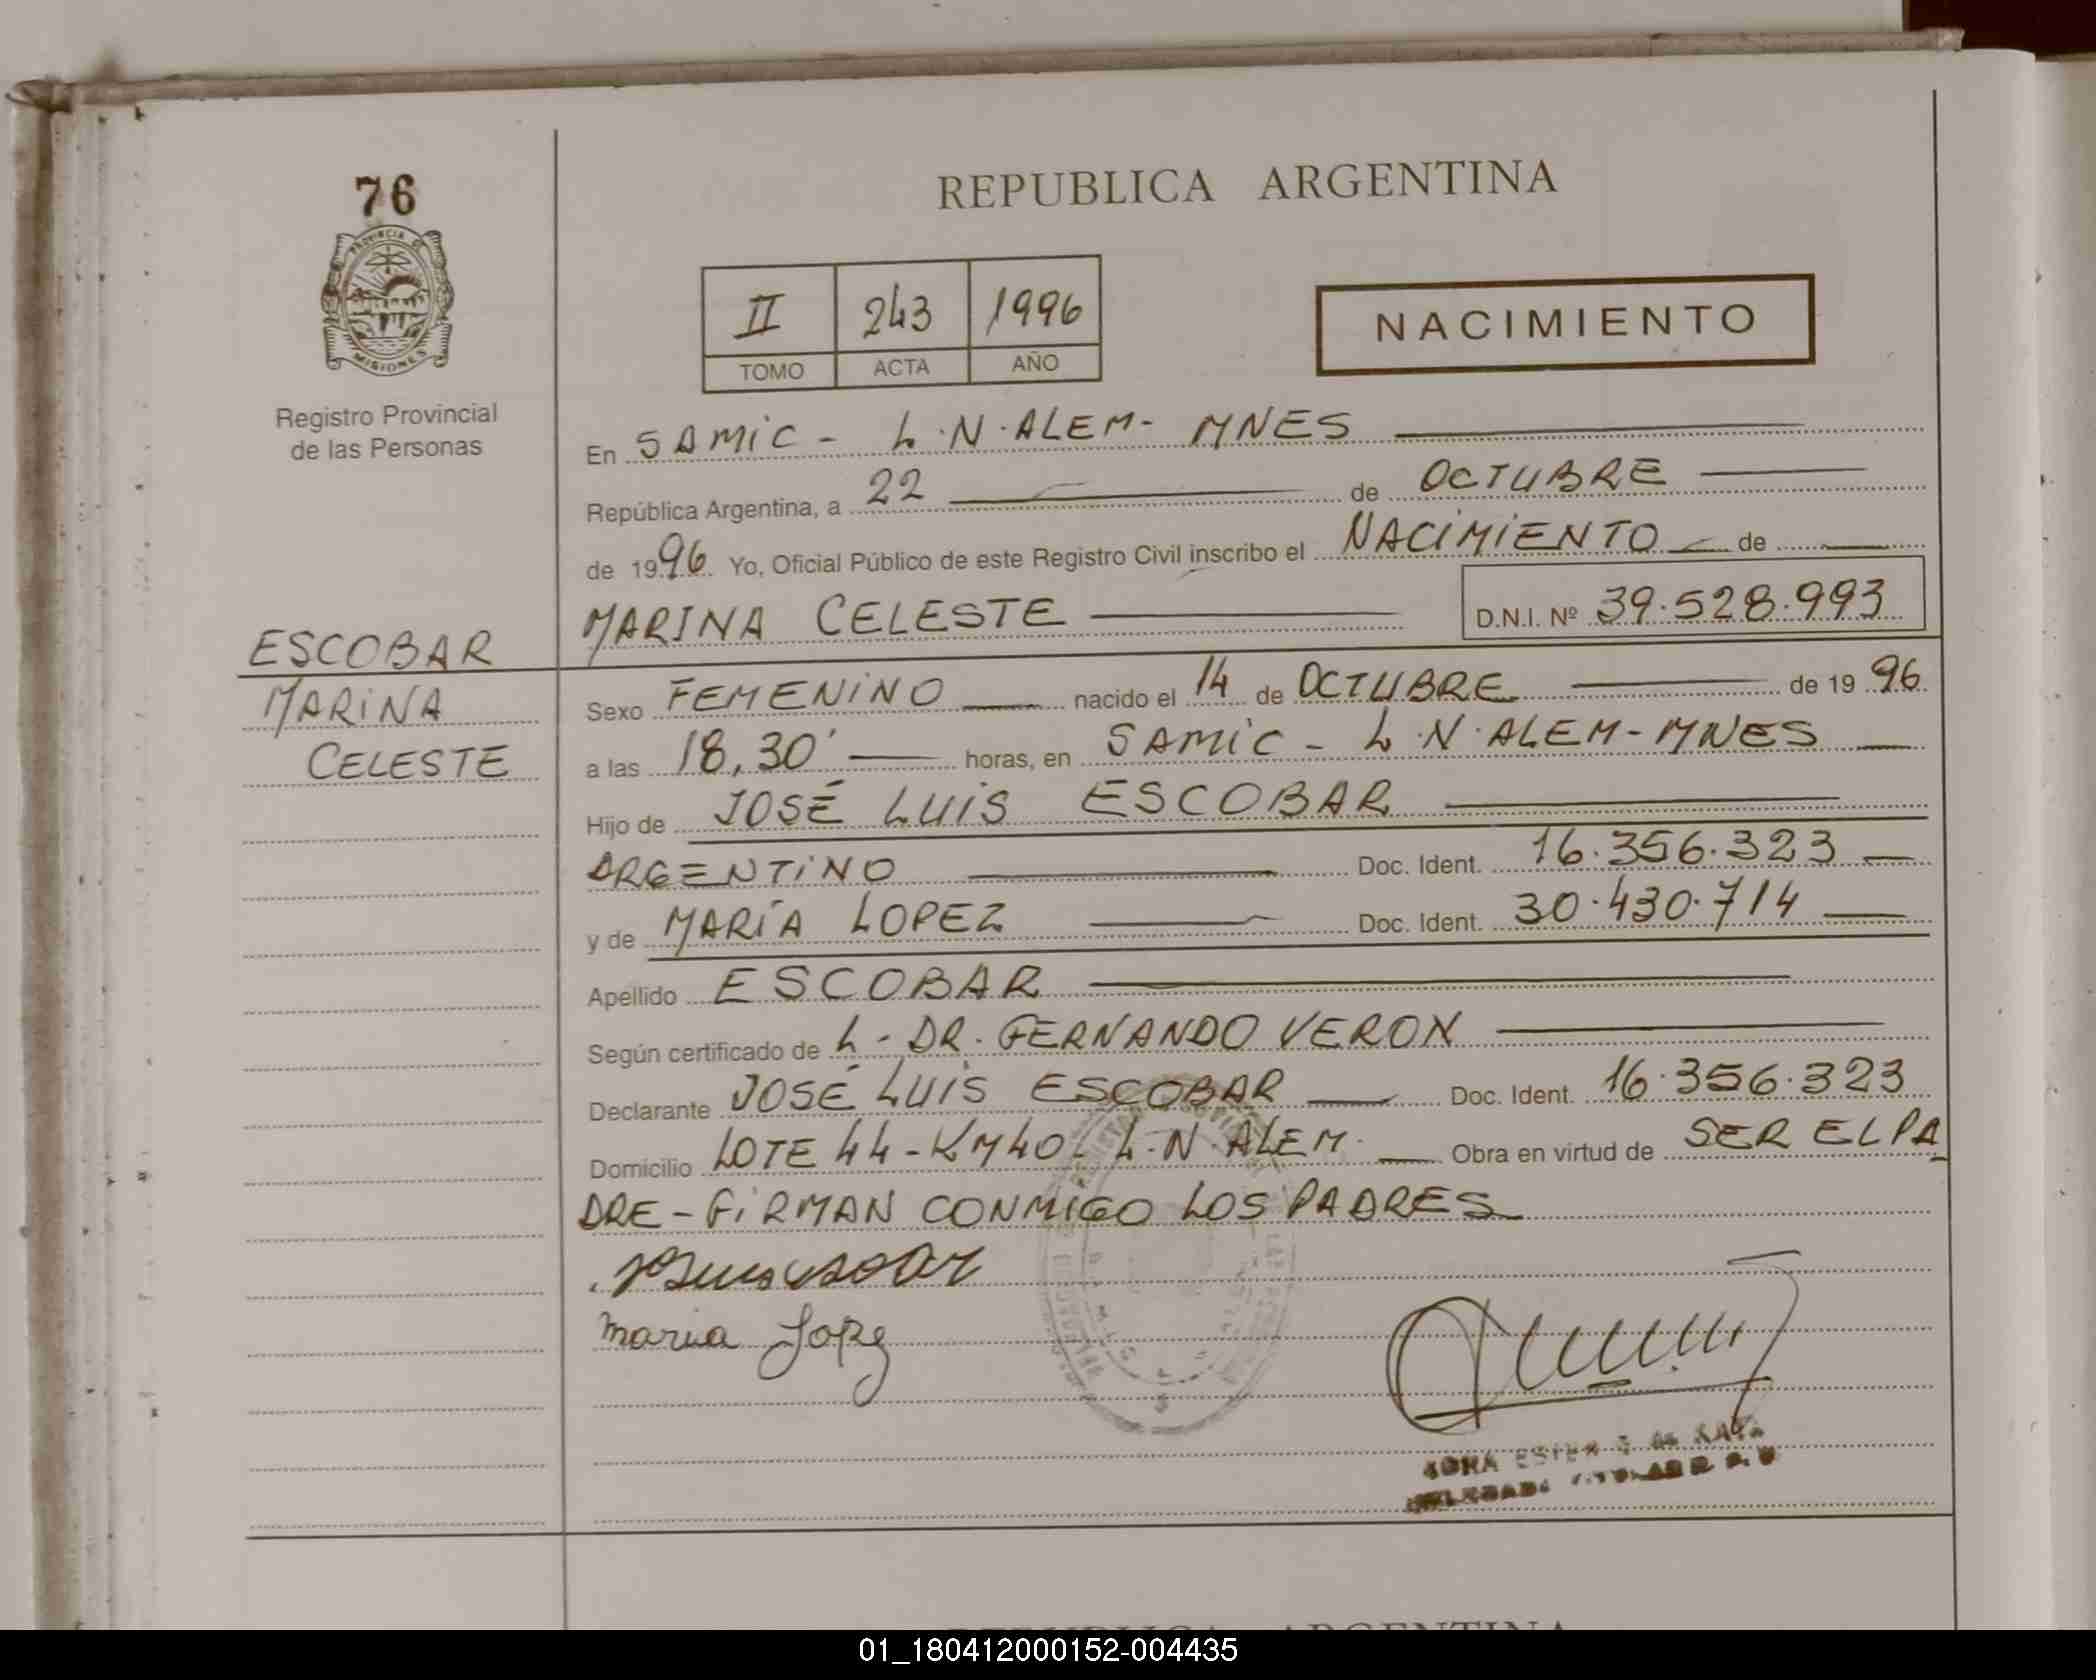 76
PROVINCIA DE
MISIONES
Registro Provincial
de las Personas
REPUBLICA ARGENTINA
II 243 1996
TOMO ACTA AÑO
NACIMIENTO
En SAMIC - L.N.ALEM- MNES
República Argentina, a 22 de OCTUBRE
de 1996 Yo, Oficial Público de este Registro Civil inscribo el NACIMIENTO de
MARINA CELESTE D.N.I. Nº 39.528.993
ESCOBAR
MARINA
CELESTE
Sexo FEMENINO nacido el 14 de OCTUBRE de 1996
a las 18,30' horas, en SAMIC - L.N.ALEM-MNES
Hijo de JOSÉ LUIS ESCOBAR
ARGENTINO Doc. Ident. 16.356.323
y de MARÍA LOPEZ Doc. Ident. 30.430.714
Apellido ESCOBAR
Según certificado de L - DR. FERNANDO VERON
Declarante JOSÉ LUIS ESCOBAR Doc. Ident. 16.356.323
Domicilio LOTE 44-KM40 L.N.ALEM. Obra en virtud de SER EL PA
DRE - FIRMAN CONMIGO LOS PADRES
maria Lopez
REPUBLICA ARGENTINA
01_180412000152-004435